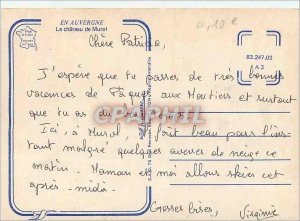 EN AUVERGNE
Le château de Murol
0,10 €
63.247.02
A 3
Chère Patricia,
J'espère que tu passes de très bonnes
vacances de Pâques aux Moutiers et surtout
que tu as du
Ici, à Murol, il fait beau pour l'ins-
tant malgré quelques averses de neige ce
matin. Maman et moi allons skier cet
après-midi.
Grosses bises,
Virginie
CPAPHIL